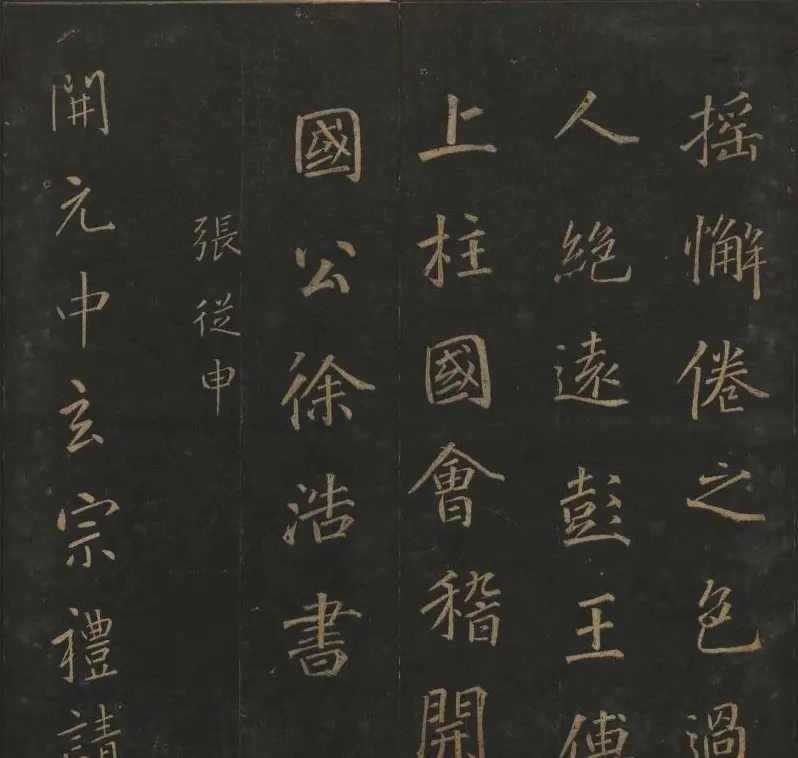 摇懈倦之色過
人絶遠彭王傅
上柱國會稽開
國公徐浩書
張從申
開元中玄宗禮請